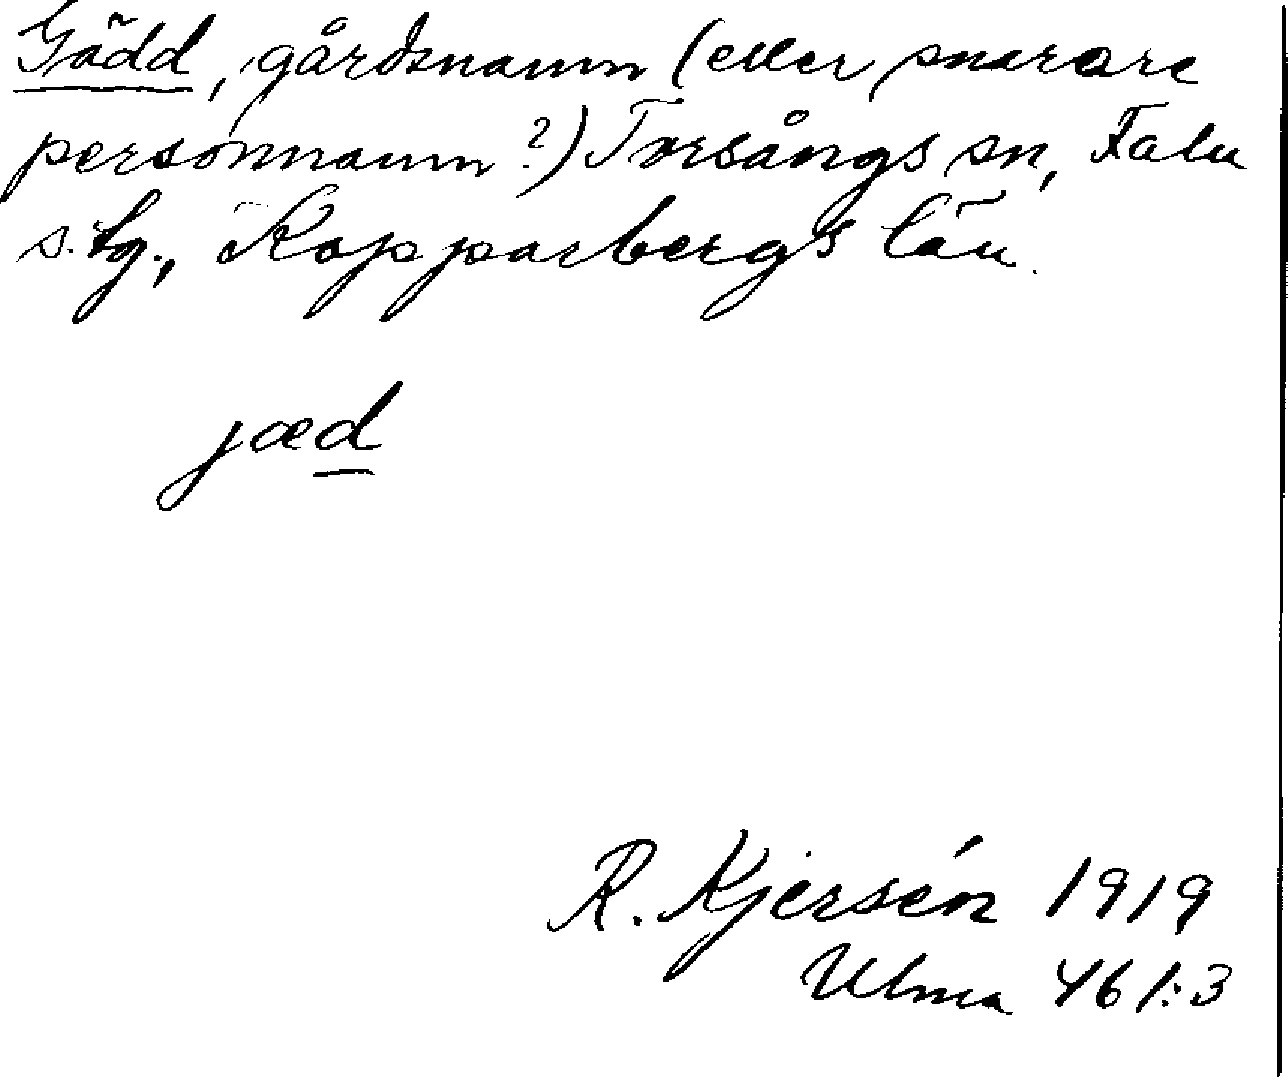 Gädd, gårdsnamn (eller snarare
personnamn?) Torsångs sn, Falu
s.lg., Kopparbergs län.
jæd
R. Kjersén 1919
Ulma 461:3